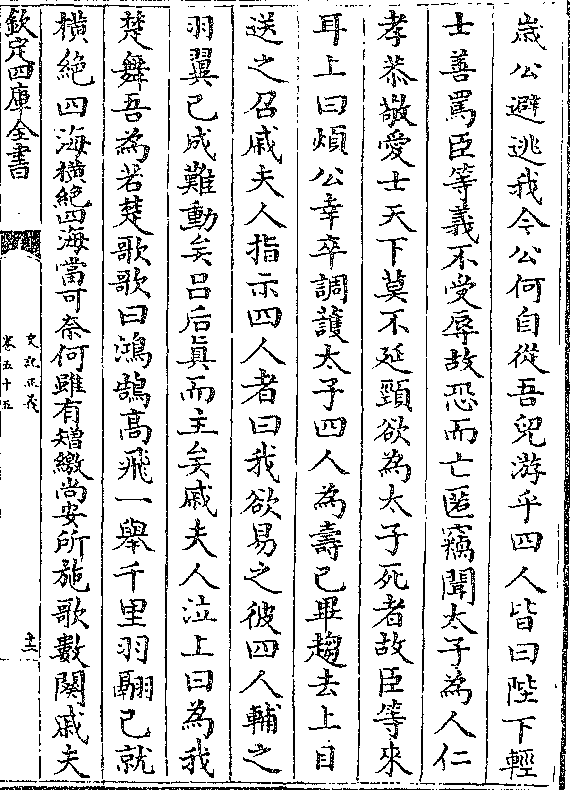 嵗公避逃我今公何自從吾兒游乎四人皆曰陛下輕
士善罵臣等義不受辱故恐而亡匿竊聞太子為人仁
孝恭敬愛士天下莫不延頸欲為太子死者故臣等來
耳上曰煩公幸卒調護太子四人為壽已畢趨去上目
送之召戚夫人指示四人者曰我欲易之彼四人輔之
羽翼已成難動矣吕后真而主矣戚夫人泣上曰為我
楚舞吾為若楚歌歌曰鴻鵠髙飛一舉千里羽翮已就
横絶四海横絶四海當可奈何雖有矰繳尚安所施歌數闋戚夫
欽定四庫全書
史記正義
卷五十五
十三